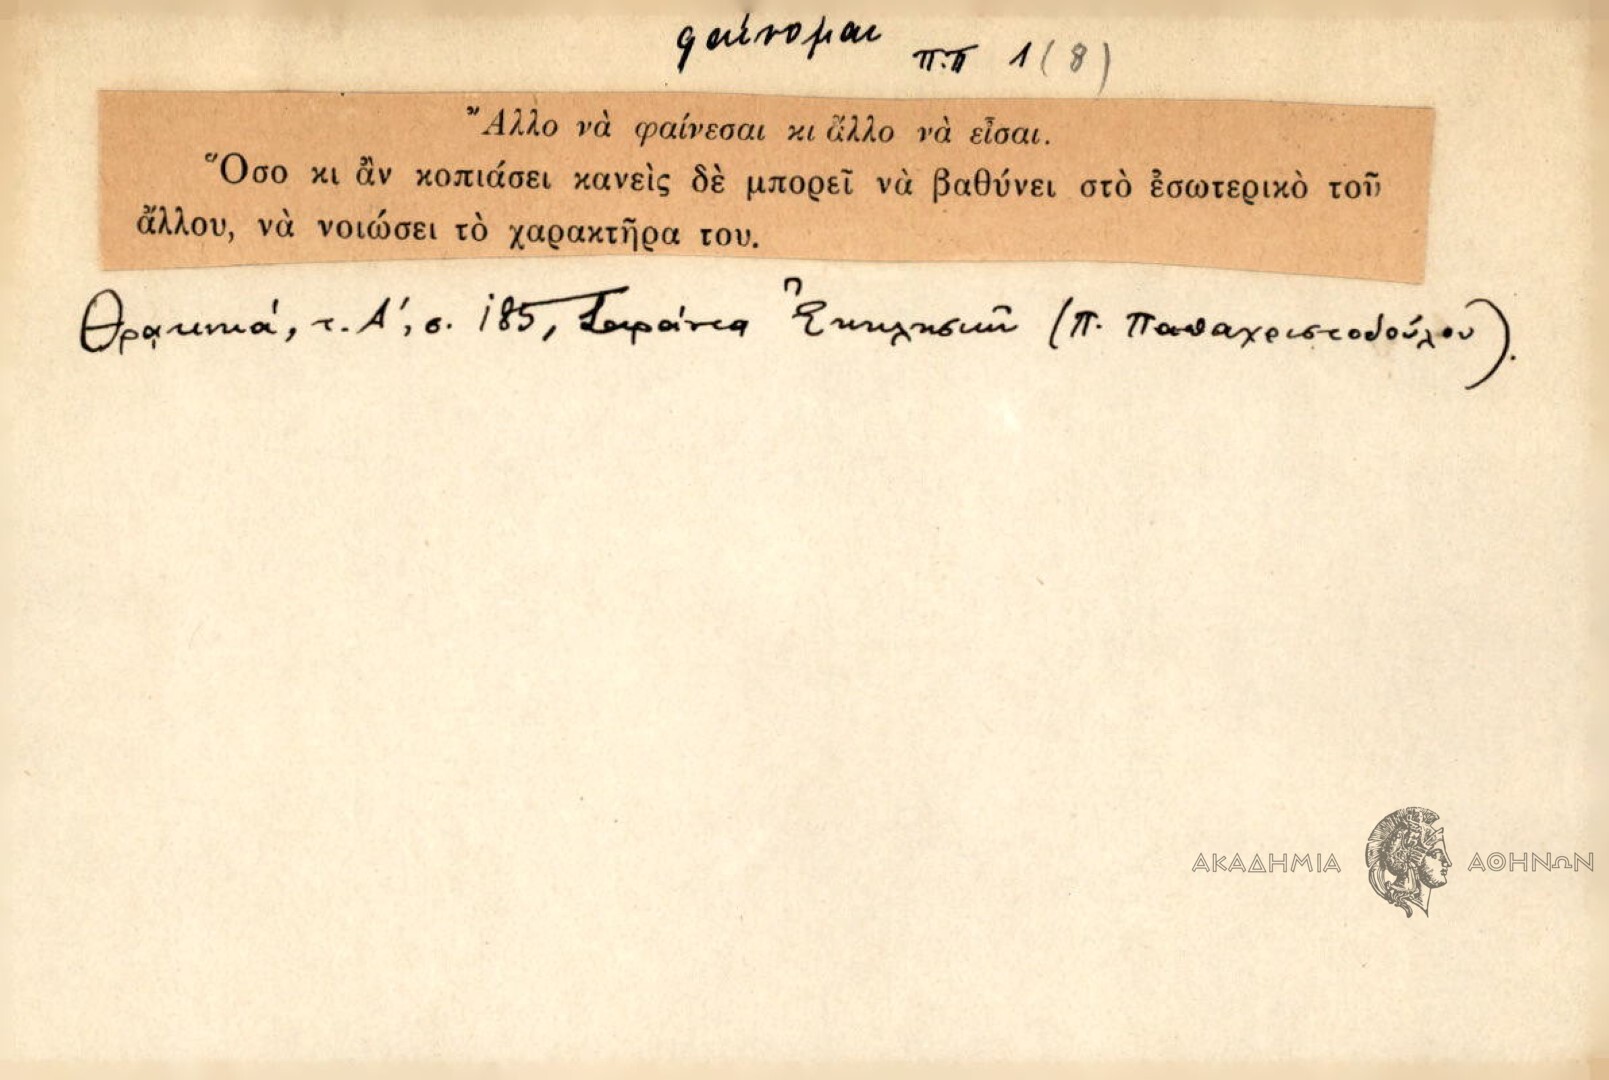 φαίνομαι
π.π 1 (8)
Ἄλλο νὰ φαίνεσαι κι ἄλλο νὰ εἶσαι.
Ὅσο κι ἂν κοπιάσει κανεὶς δὲ μπορεῖ νὰ βαθύνει στὸ ἐσωτερικὸ τοῦ
ἄλλου, νὰ νοιώσει τὸ χαρακτῆρα του.
Θρακικά, τ. Α', σ. 185, Σαράντα Ἐκκλησιῶν (Π. Παπαχριστοδούλου).
ΑΚΑΔΗΜΙΑ ΑΘΗΝΩΝ